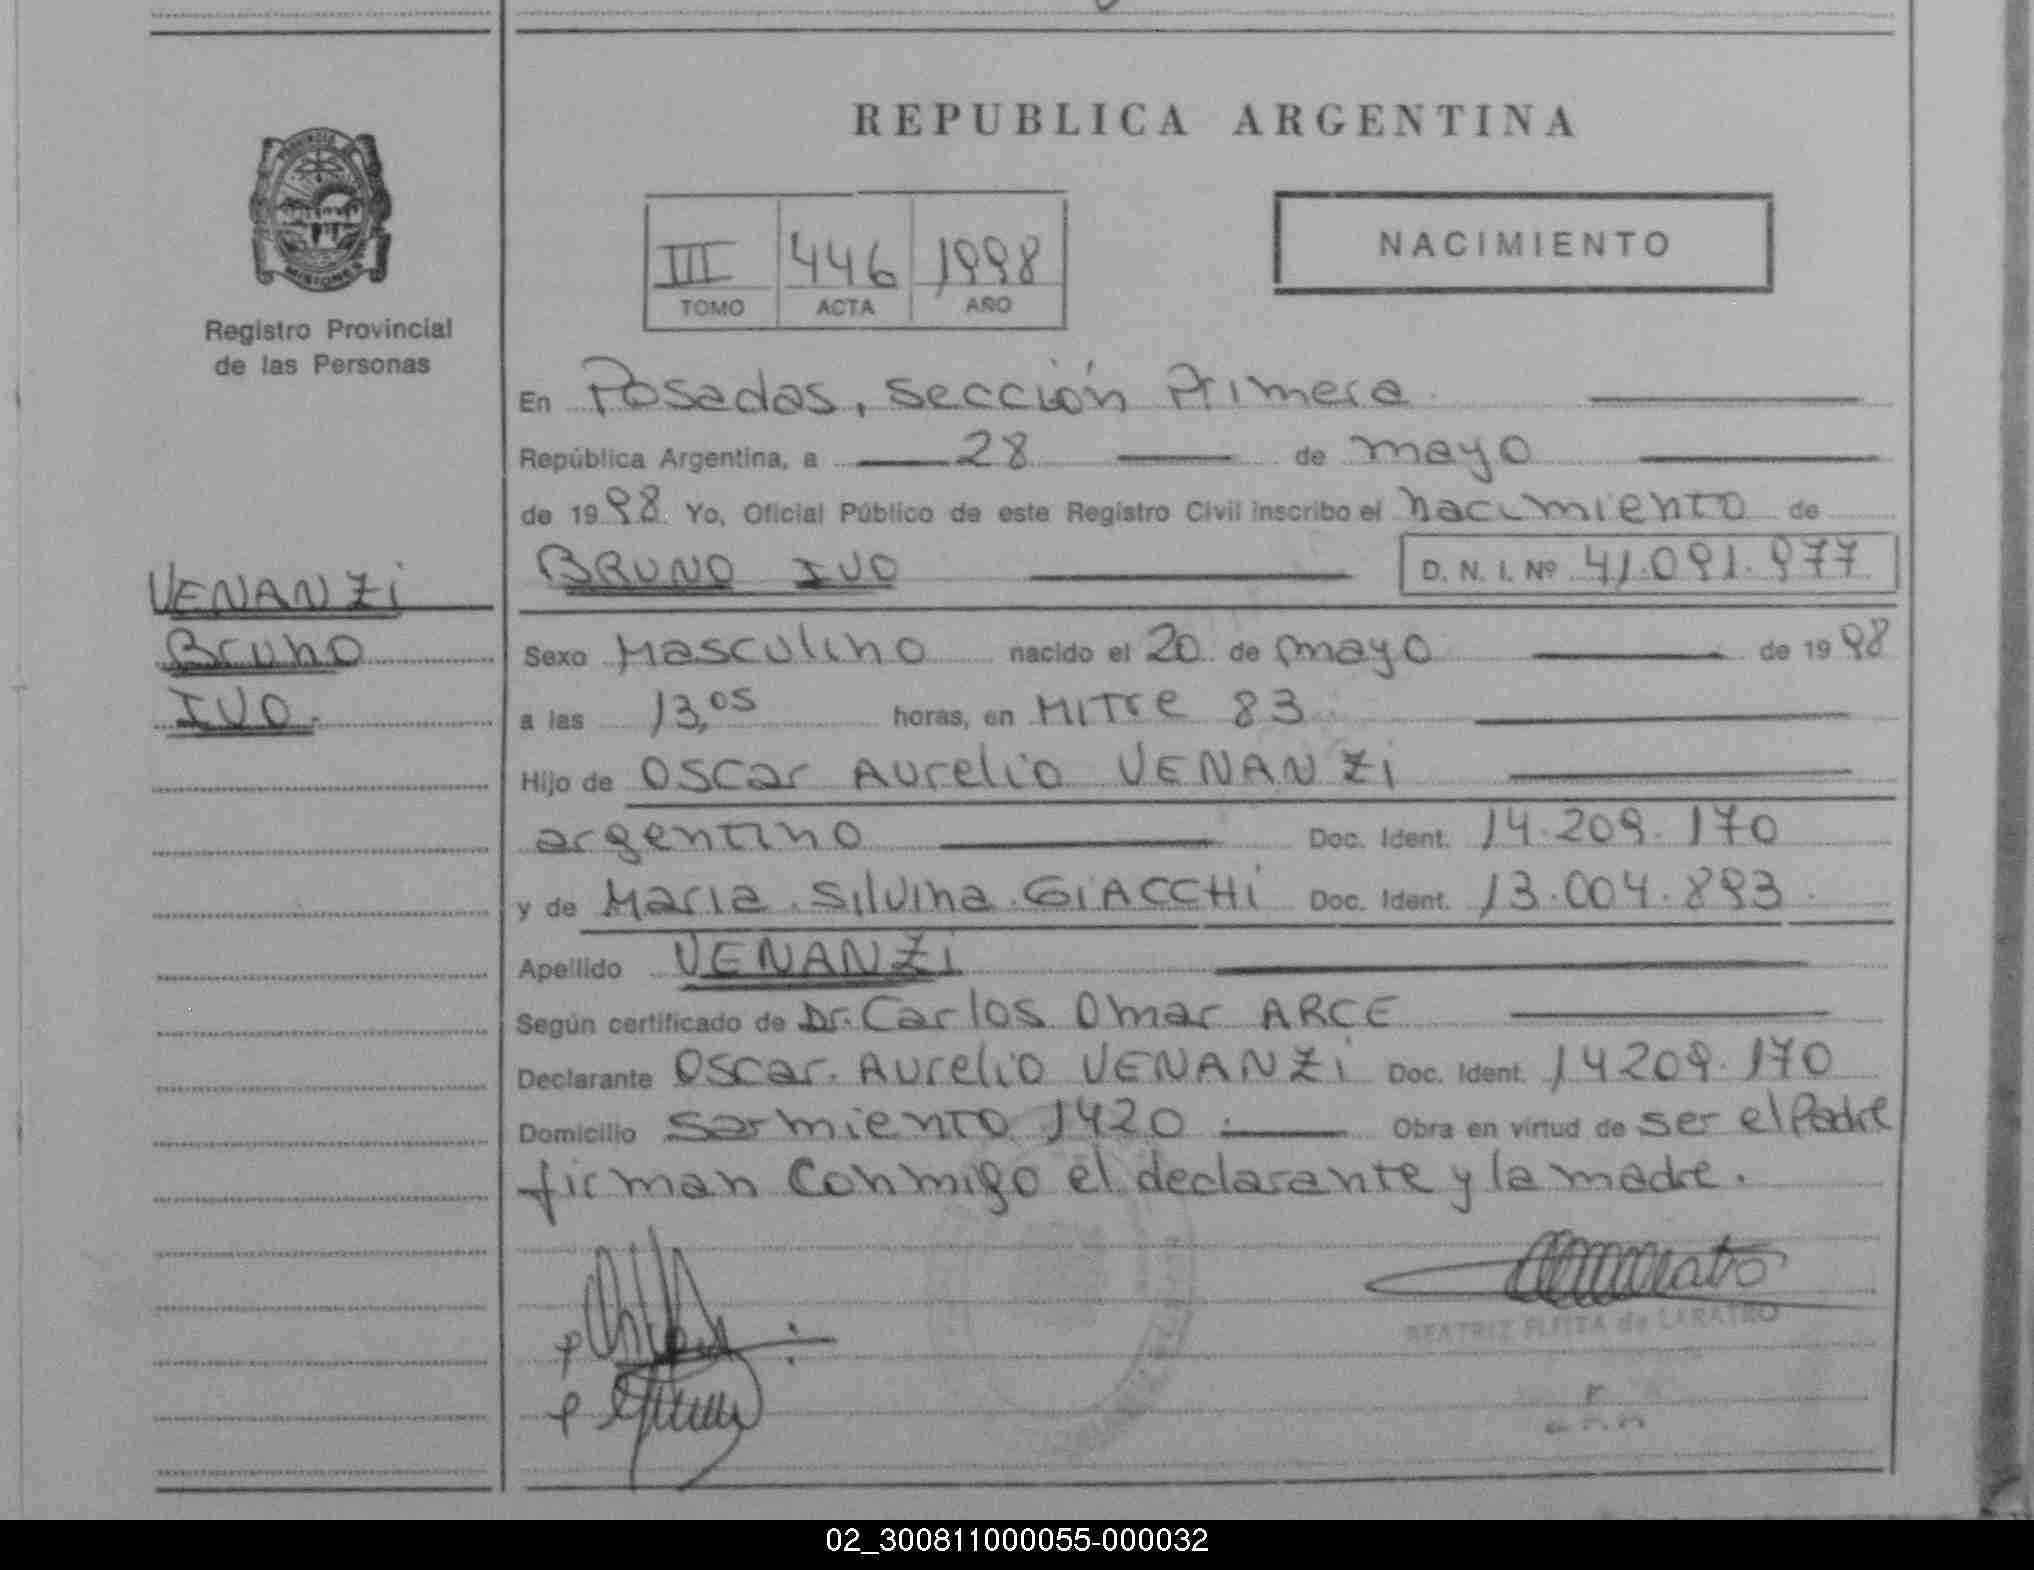 REPUBLICA ARGENTINA
III 446 1998
TOMO ACTA AÑO
NACIMIENTO
MISIONES
Registro Provincial
de las Personas
En Posadas, sección Primera
República Argentina, a 28 de mayo
de 1998 Yo, Oficial Público de este Registro Civil inscribo el nacimiento de
BRUNO IVO D. N. I. Nº 41.091.977
VENANZI
Bruno
IVO.
Sexo Masculino nacido el 20 de mayo de 1998
a las 13,05 horas, en MITre 83
Hijo de Oscar Aurelio VENANZI
argentino Doc. Ident. 14.209.170
y de Maria Silvina GIACCHI Doc. Ident. 13.004.893
Apellido VENANZI
Según certificado de Dr. Carlos Omar ARCE
Declarante Oscar Aurelio VENANZI Doc. Ident. 14209.170
Domicilio Sarmiento 1420 Obra en virtud de ser el Padre
firman conmigo el declarante y la madre.
BEATRIZ de LARATRO
02_300811000055-000032